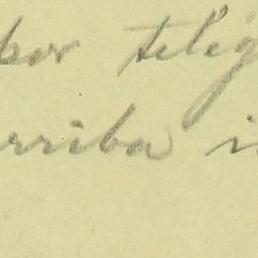 por teleg
rriba i